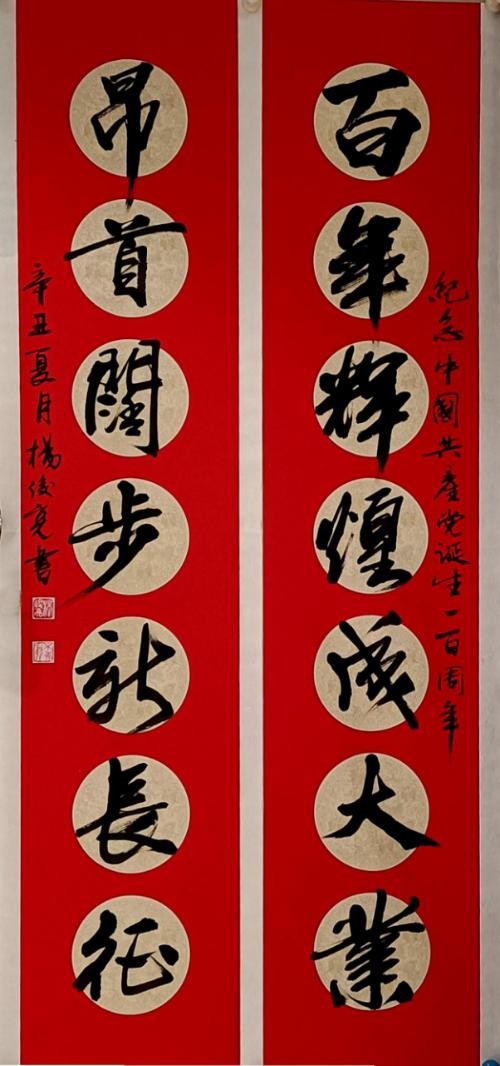 紀念中國共產党誕生一百周年
百年輝煌成大業
昂首闊步新長征
辛丑夏月楊俊亮書